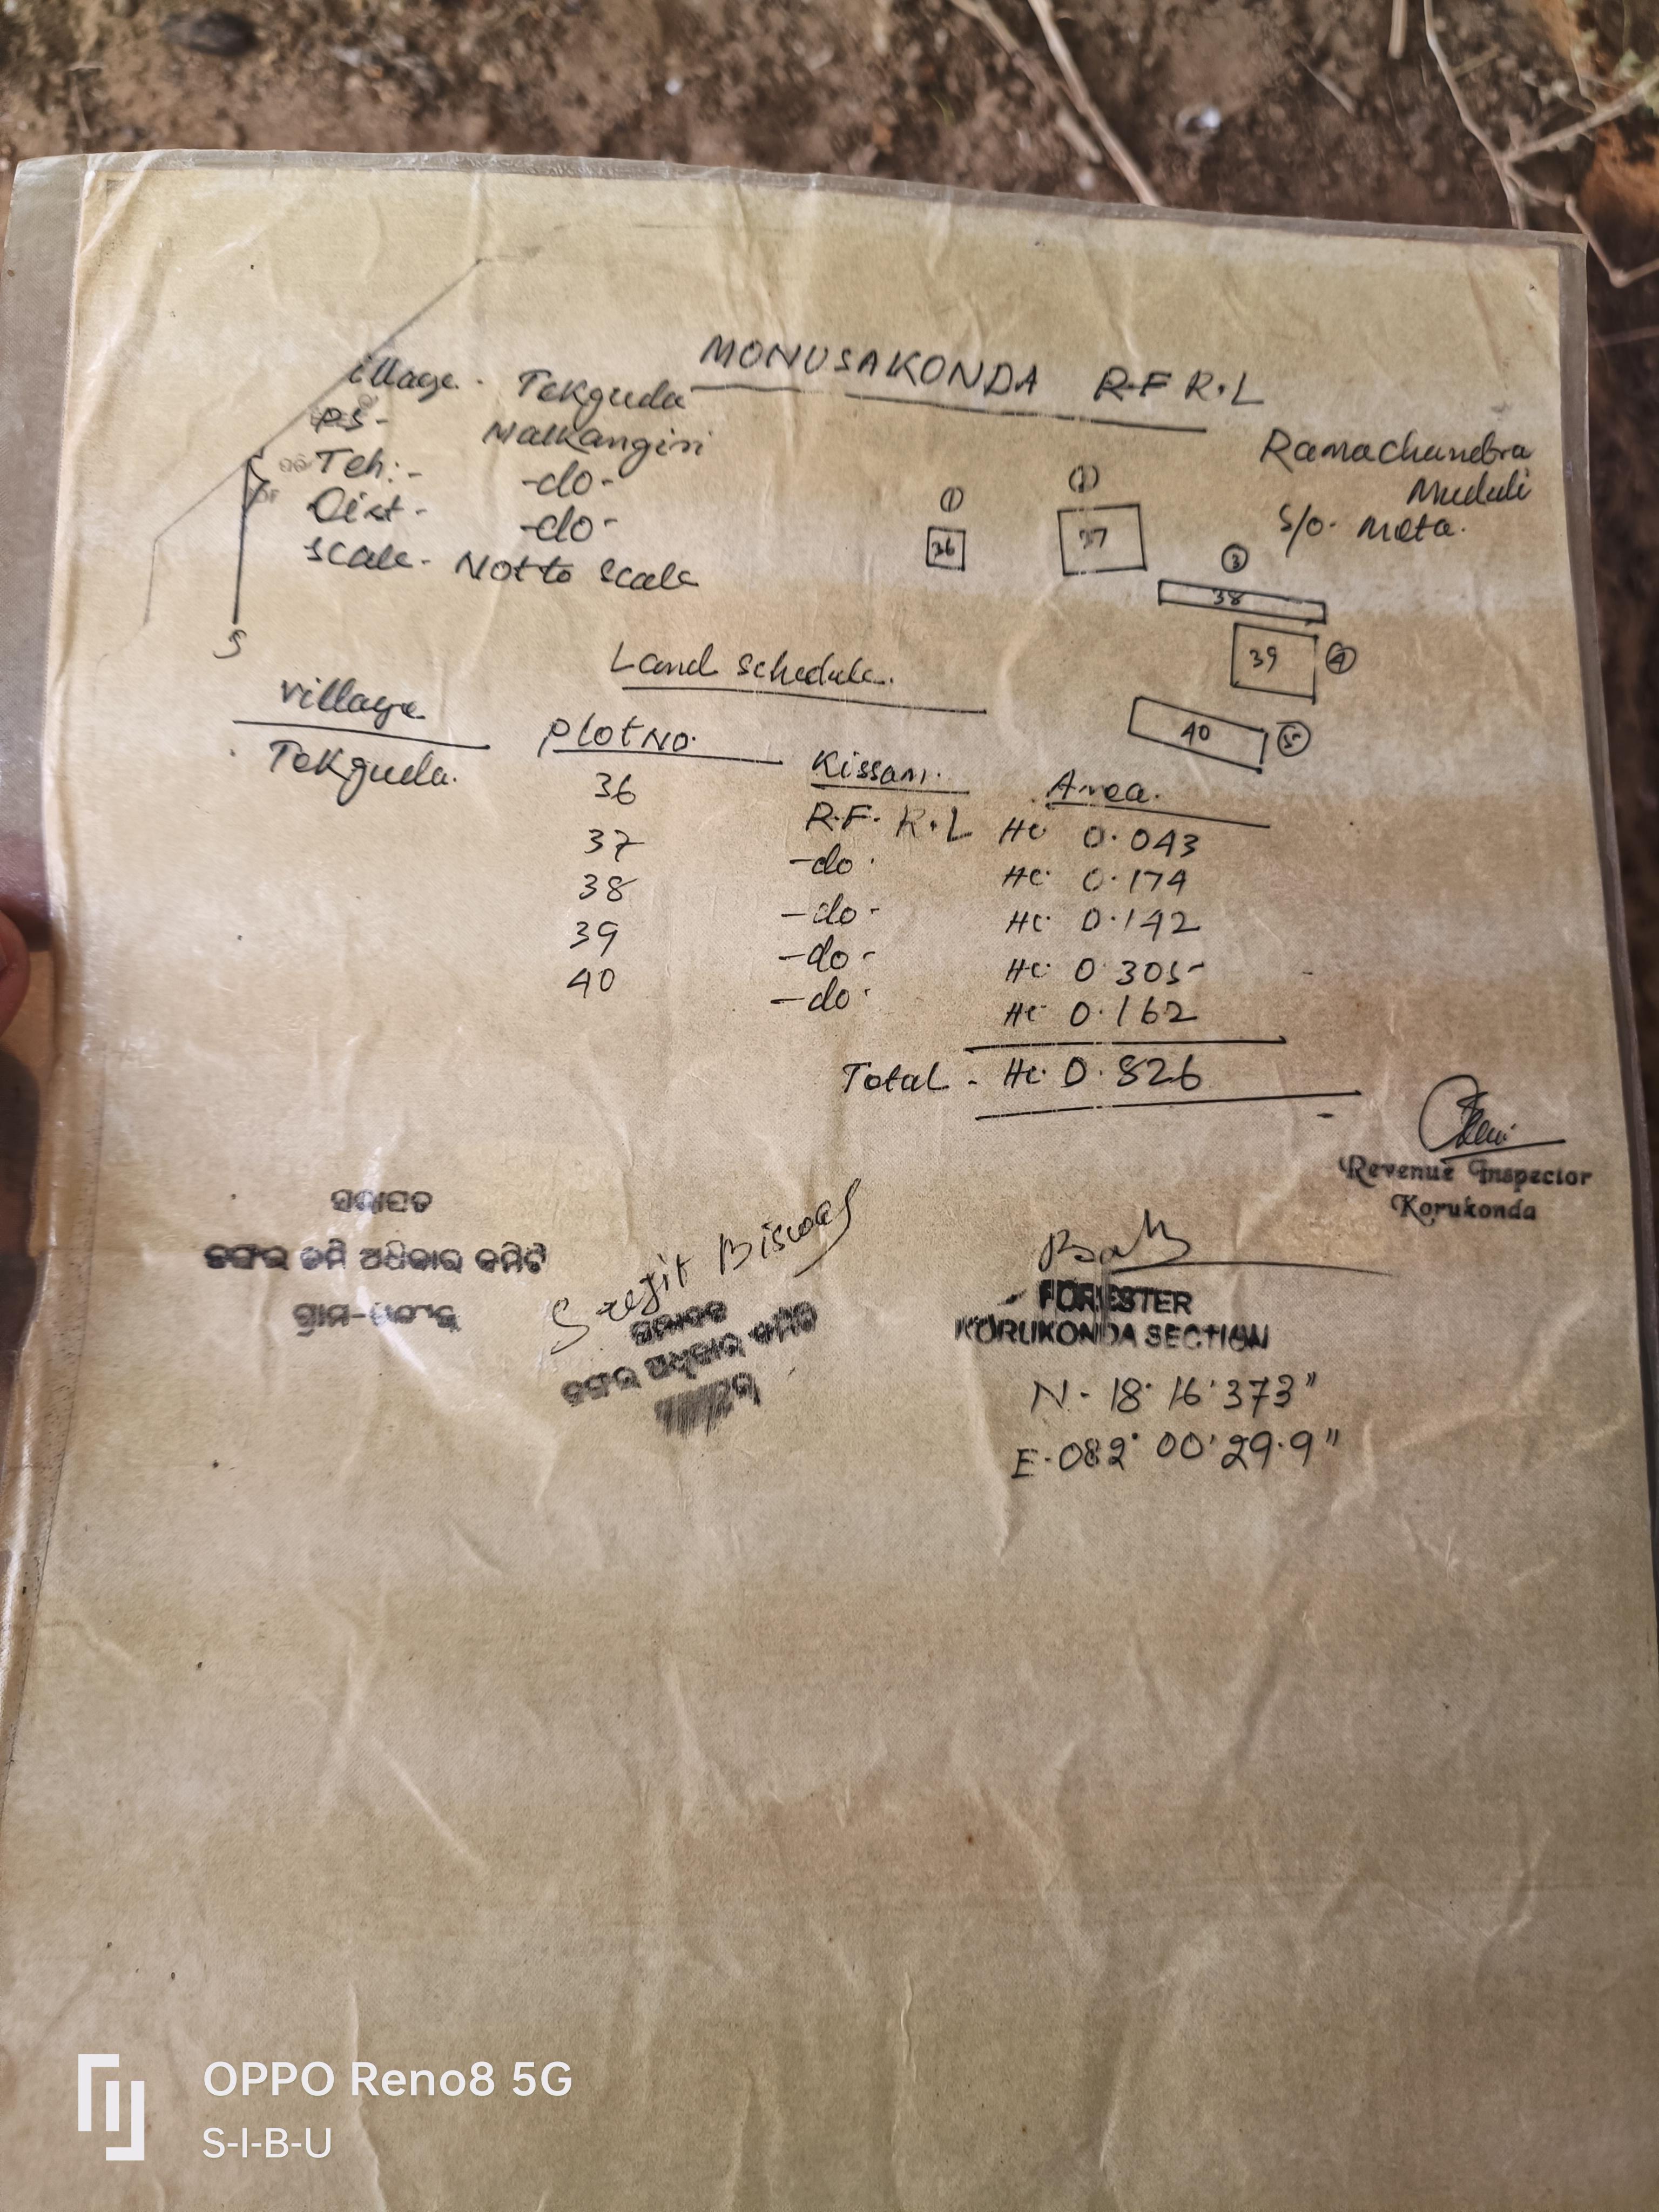 MONUSAKONDA R.F R.L
village. Tekguda
PS- Malkangiri
Teh:- -do-
Dist- -do-
Scale- Not to Scale
S
Ramachandra
Muduli
S/o- Meta.
① 36
② 37
③ 38
39 ④
40 ⑤
Land schedule.
village Plot No. Kissam. Area.
Tekguda. 36 R.F. R.L Hc 0.043
37 -do- Hc 0.174
38 -do- Hc 0.142
39 -do- Hc 0.305
40 -do- Hc 0.162
Total - Hc. 0.826
Revenue Inspector
Korukonda
ଜଙ୍ଗଲ ଜମି ଅଧିକାର କମିଟି
ଗ୍ରାମ-
Biswas
ଜଙ୍ଗଲ ଅଧିକାର କମିଟି
FORESTER
KORUKONDA SECTION
N- 18° 16' 373"
E-082° 00' 29.9"
OPPO Reno8 5G
S-I-B-U